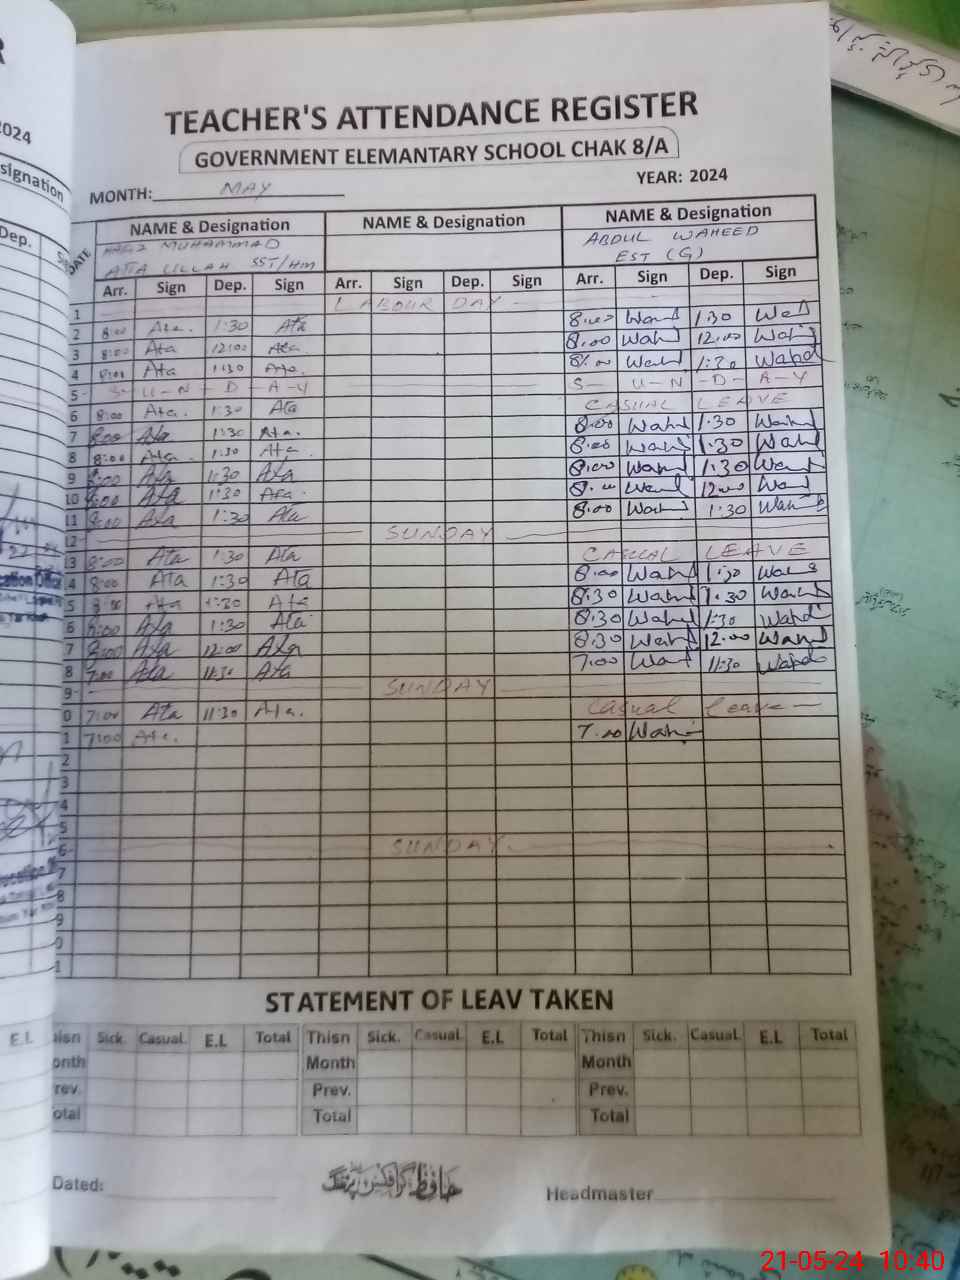 2024
signation
Dep.
TEACHER'S ATTENDANCE REGISTER
GOVERNMENT ELEMANTARY SCHOOL CHAK 8/A
MONTH: MAY YEAR: 2024
DATE NAME & Designation NAME & Designation NAME & Designation
HAFIZ MUHAMMAD ABDUL WAHEED
ATTA ULLAH SST/HM EST (G)
Arr. Sign Dep. Sign Arr. Sign Dep. Sign Arr. Sign Dep. Sign
1 LABOUR DAY
2 8:00 Ata. 1:30 Ata 8:00 Wahd 1:30 Wahd
3 8:00 Ata 12:00 Ata 8:00 Wahd 12:00 Wahd
4 8:00 Ata 1:30 Ata. 8:00 Wahd 1:30 Wahd
5 S-U-N-D-A-Y S-U-N-D-A-Y
6 8:00 Ata. 1:30 Ata CASUAL LEAVE
7 8:00 Ata 1:30 Ata. 8:00 Wahd 1:30 Wahd
8 8:00 Ata 1:30 Ata. 8:00 Wahd 1:30 Wahd
9 8:00 Ata 1:30 Ata 8:00 Wahd 1:30 Wahd
10 8:00 Ata 1:30 Ata. 8:00 Wahd 12:00 Wahd
11 8:00 Ata 1:30 Ata 8:00 Wahd 1:30 Wahd
12 SUNDAY
3 8:00 Ata 1:30 Ata CASUAL LEAVE
4 8:00 Ata 1:30 Ata 8:00 Wahd 1:30 Wahd
5 8:00 Ata 1:30 Ata 8:30 Wahd 1:30 Wahd
6 8:00 Ata 1:30 Ata 8:30 Wahd 1:30 Wahd
7 8:00 Ata 12:00 Ata 8:30 Wahd 12:00 Wahd
8 7:00 Ata 11:30 Ata 7:00 Wahd 11:30 Wahd
9 SUNDAY
0 7:00 Ata 11:30 Ata. Casual leave
1 7:00 Ata. 7:00 Wahd
2
3
4
5
6 SUNDAY
7
8
9
0
1
STATEMENT OF LEAV TAKEN
E.L Thisn Sick. Casual. E.L Total Thisn Sick. Casual. E.L Total Thisn Sick. Casual. E.L Total
onth Month Month
rev. Prev. Prev.
otal Total Total
Dated: حافظ گرافکس پرنٹنگ Headmaster
21-05-24 10:40